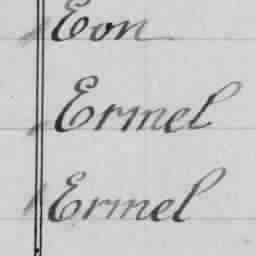 Eon
Ermel
Ermel